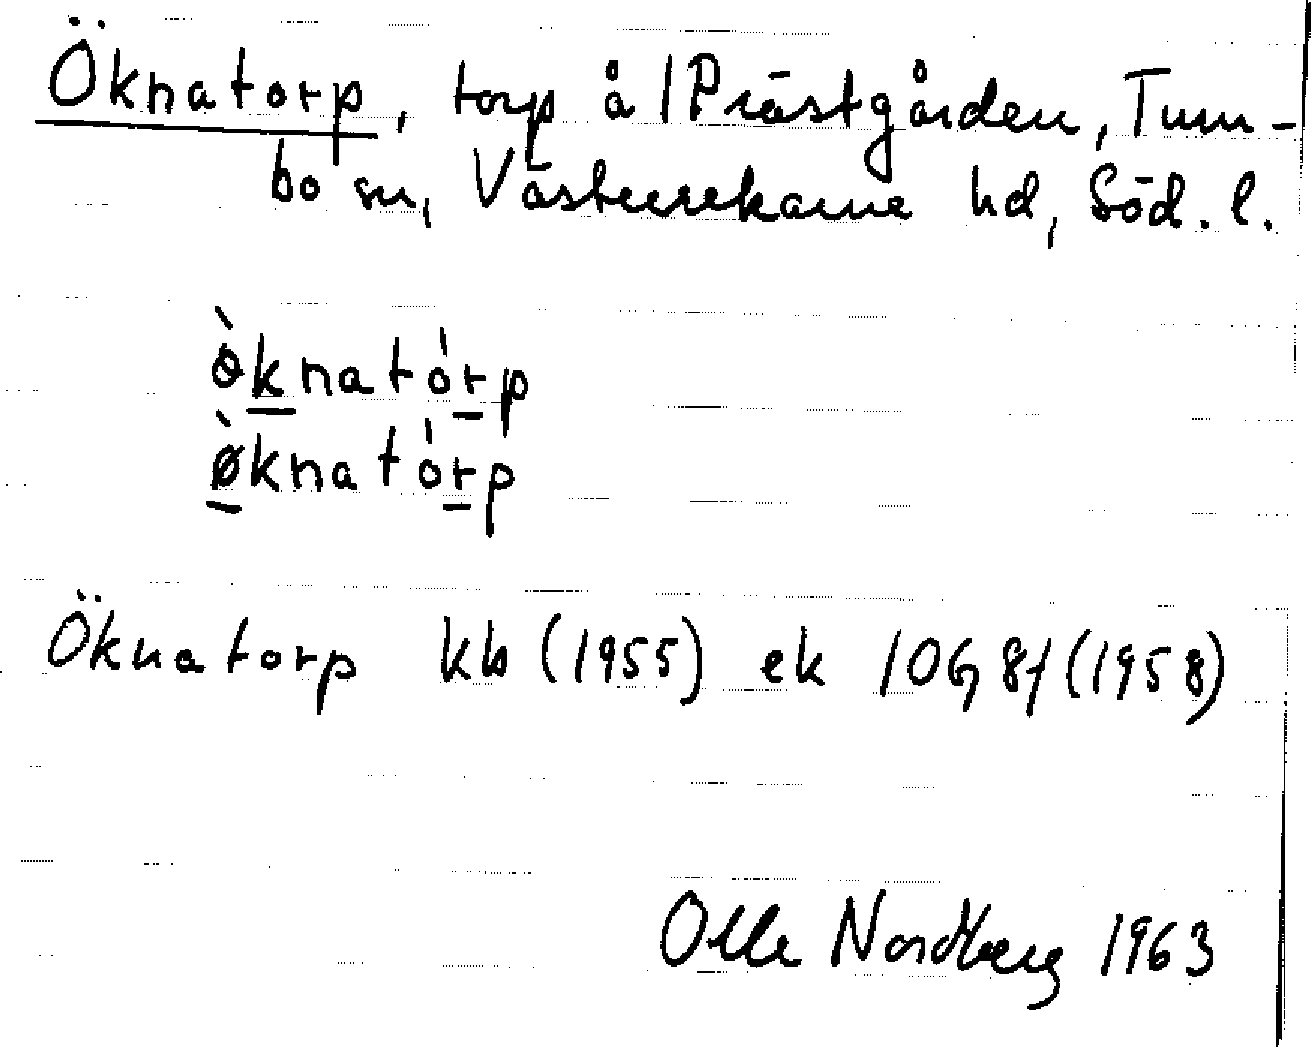 Öknatorp, torp å /Prästgården, Tum-
bo sn, Västerrekarne hd, Söd. l.
ò̀knató́rp
ø̀knató́rp
Öknatorp kb (1955) ek 10G 8f (1958)
Olle Nordberg 1963